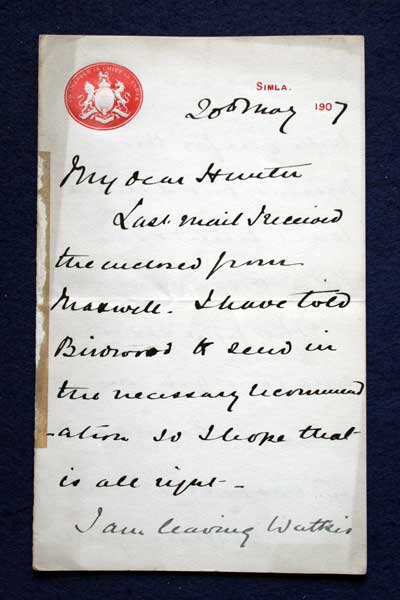 COMMANDER IN CHIEF IN INDIA
SIMLA.
20th May 1907
My dear Hunter
Last mail I received
the enclosed from
Maxwell. I have told
Birdwood to send in
the necessary recommend
-ation so I hope that
is all right -
I am leaving Watkis